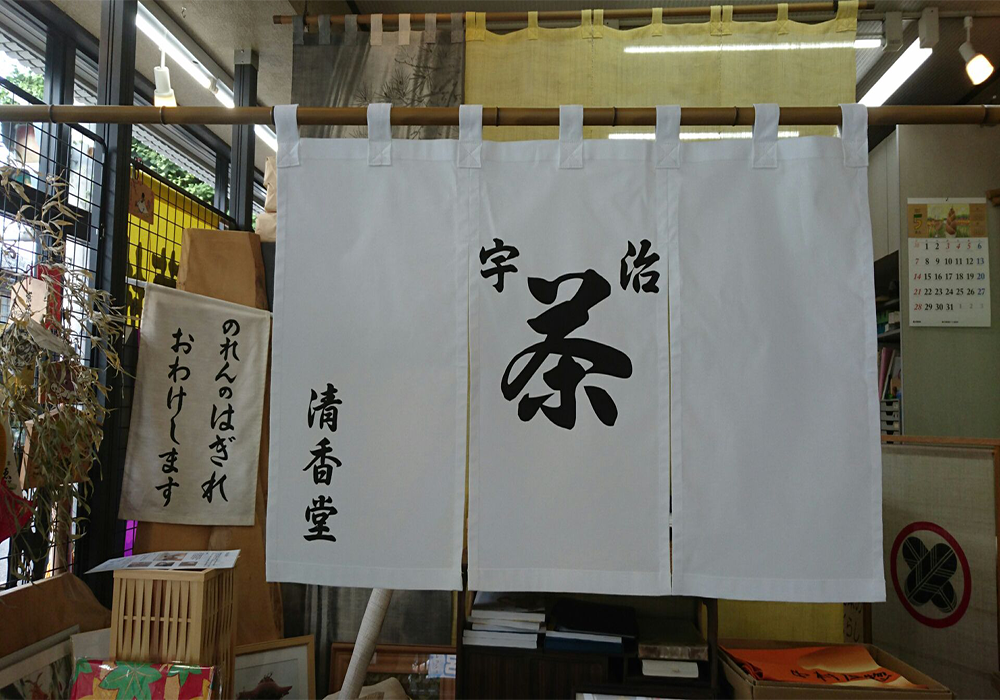 宇治
茶
清香堂
のれんのはぎれ
おわけします
1 2 3 4 5 6
7 8 9 10 11 12 13
14 15 16 17 18 19 20
21 22 23 24 25 26 27
28 29 30 31